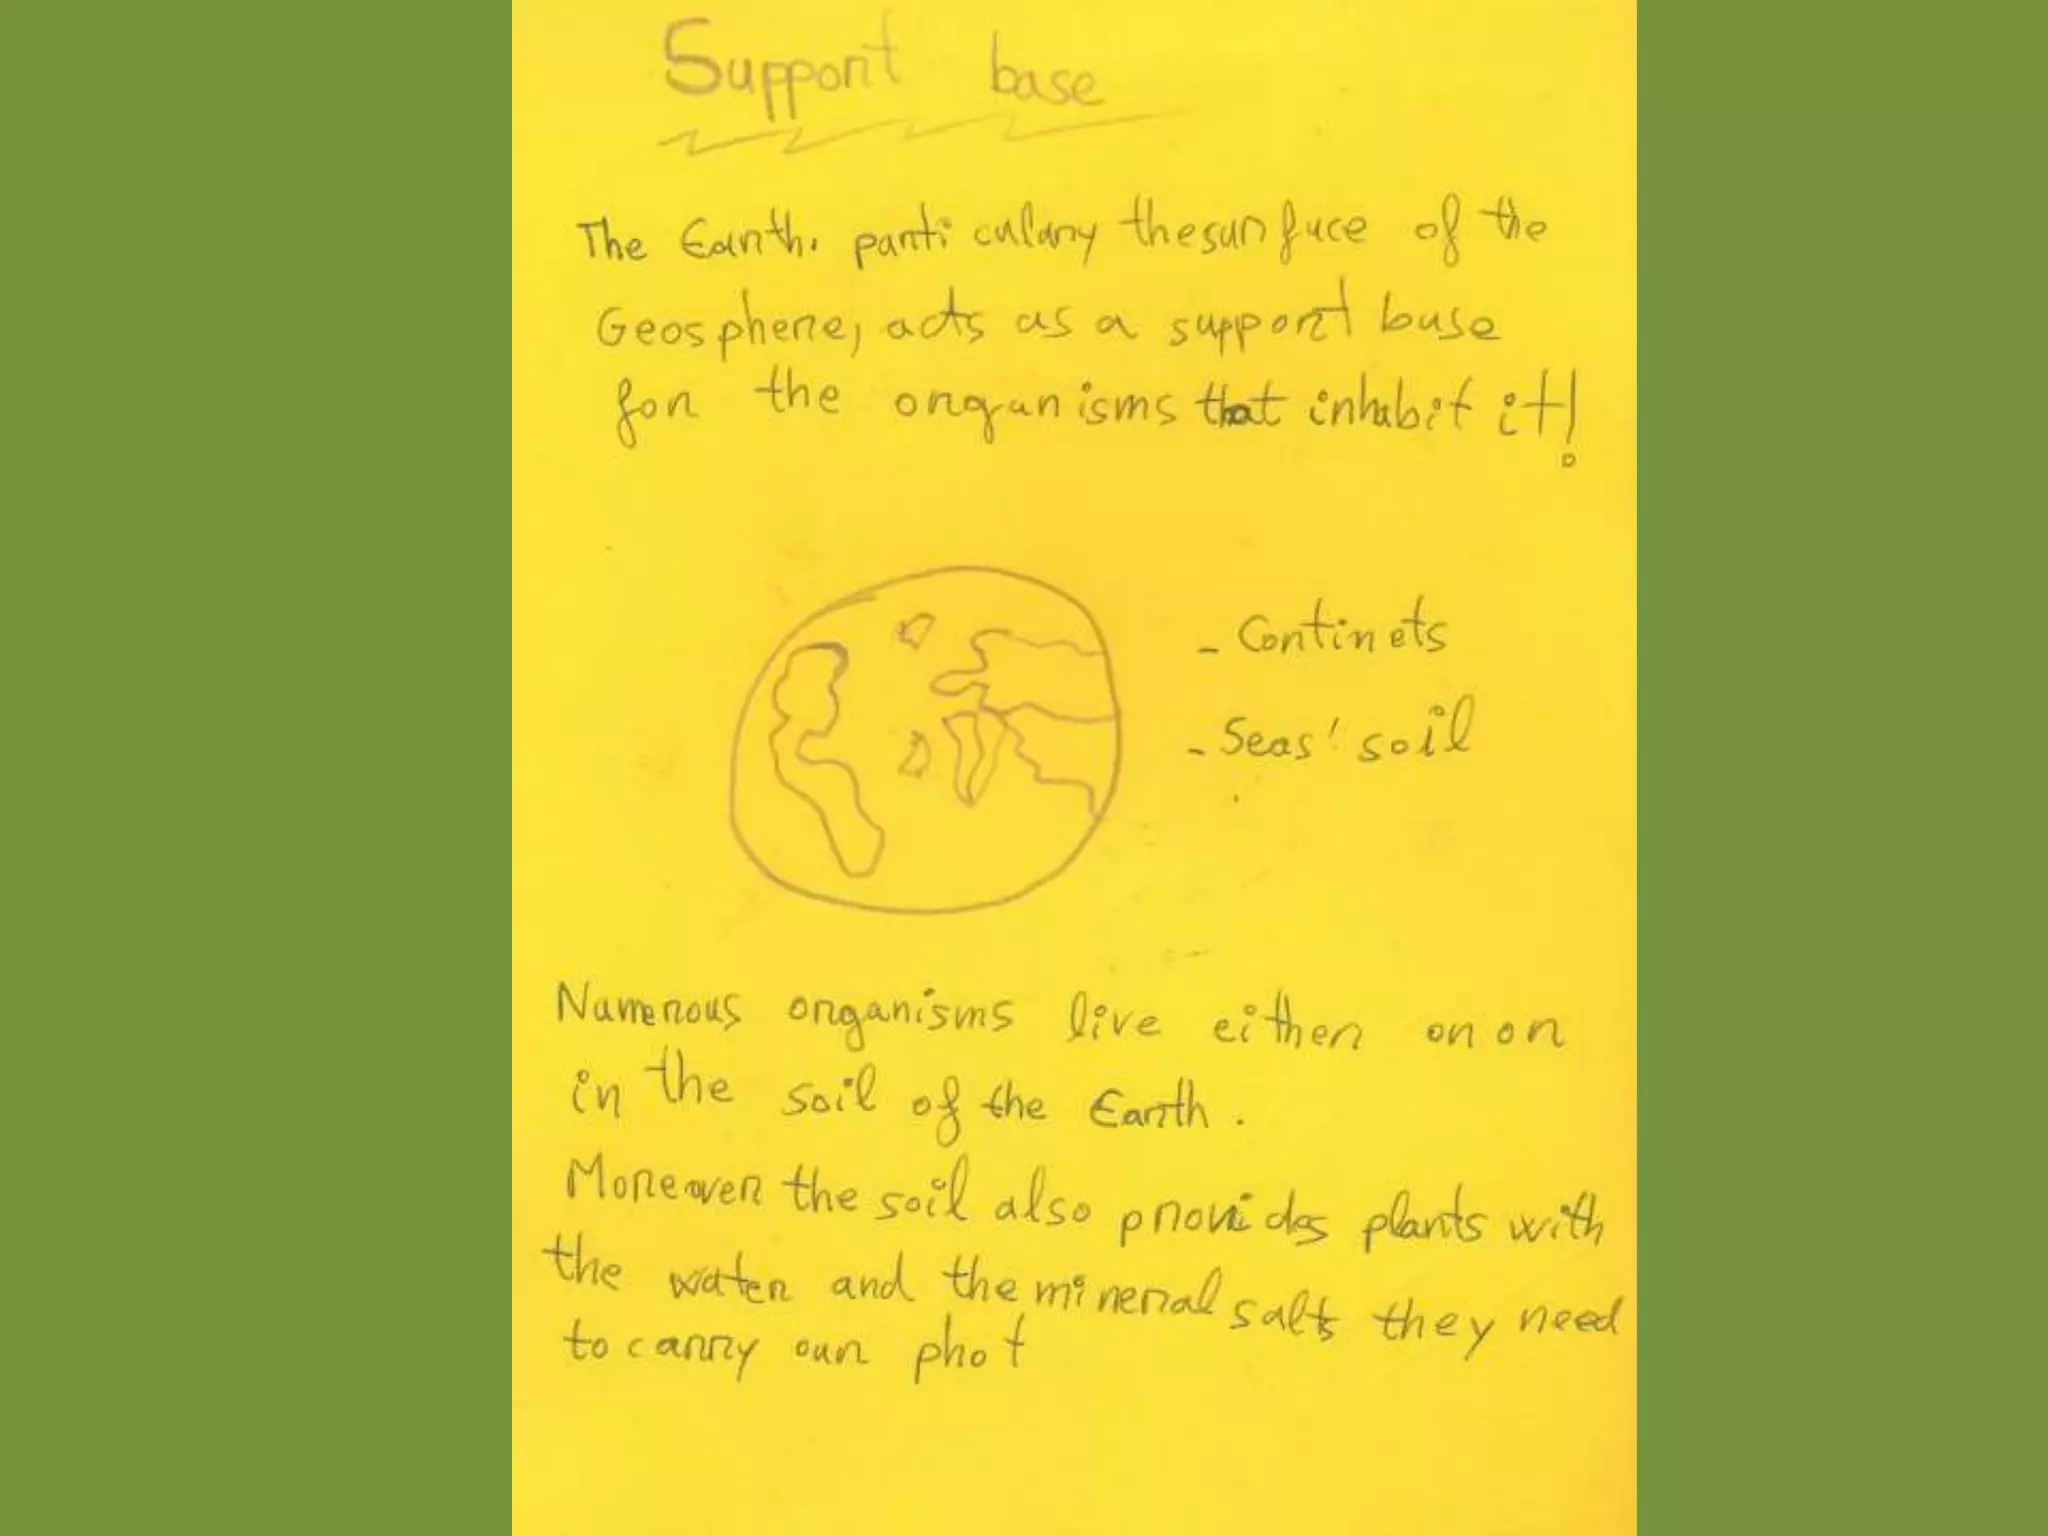 Support base
The Earth. particulary the surface of the
Geosphere, acts as a support base
for the organisms that inhabit it!
- Continets
- Seas' soil
Numerous organisms live either on or
in the soil of the Earth.
Moreover the soil also provides plants with
the water and the mineral salts they need
to carry our phot